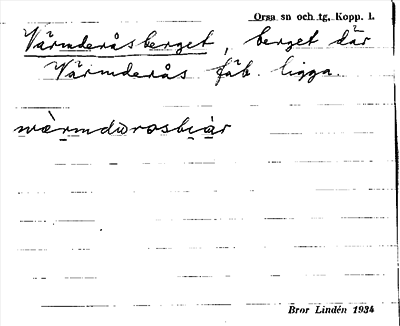 Orsa sn och tg, Kopp. l.
Värmderåsberget, berget där
Värmderås fäb. ligga.
wärmdωrosbiär
Bror Lindén 1934